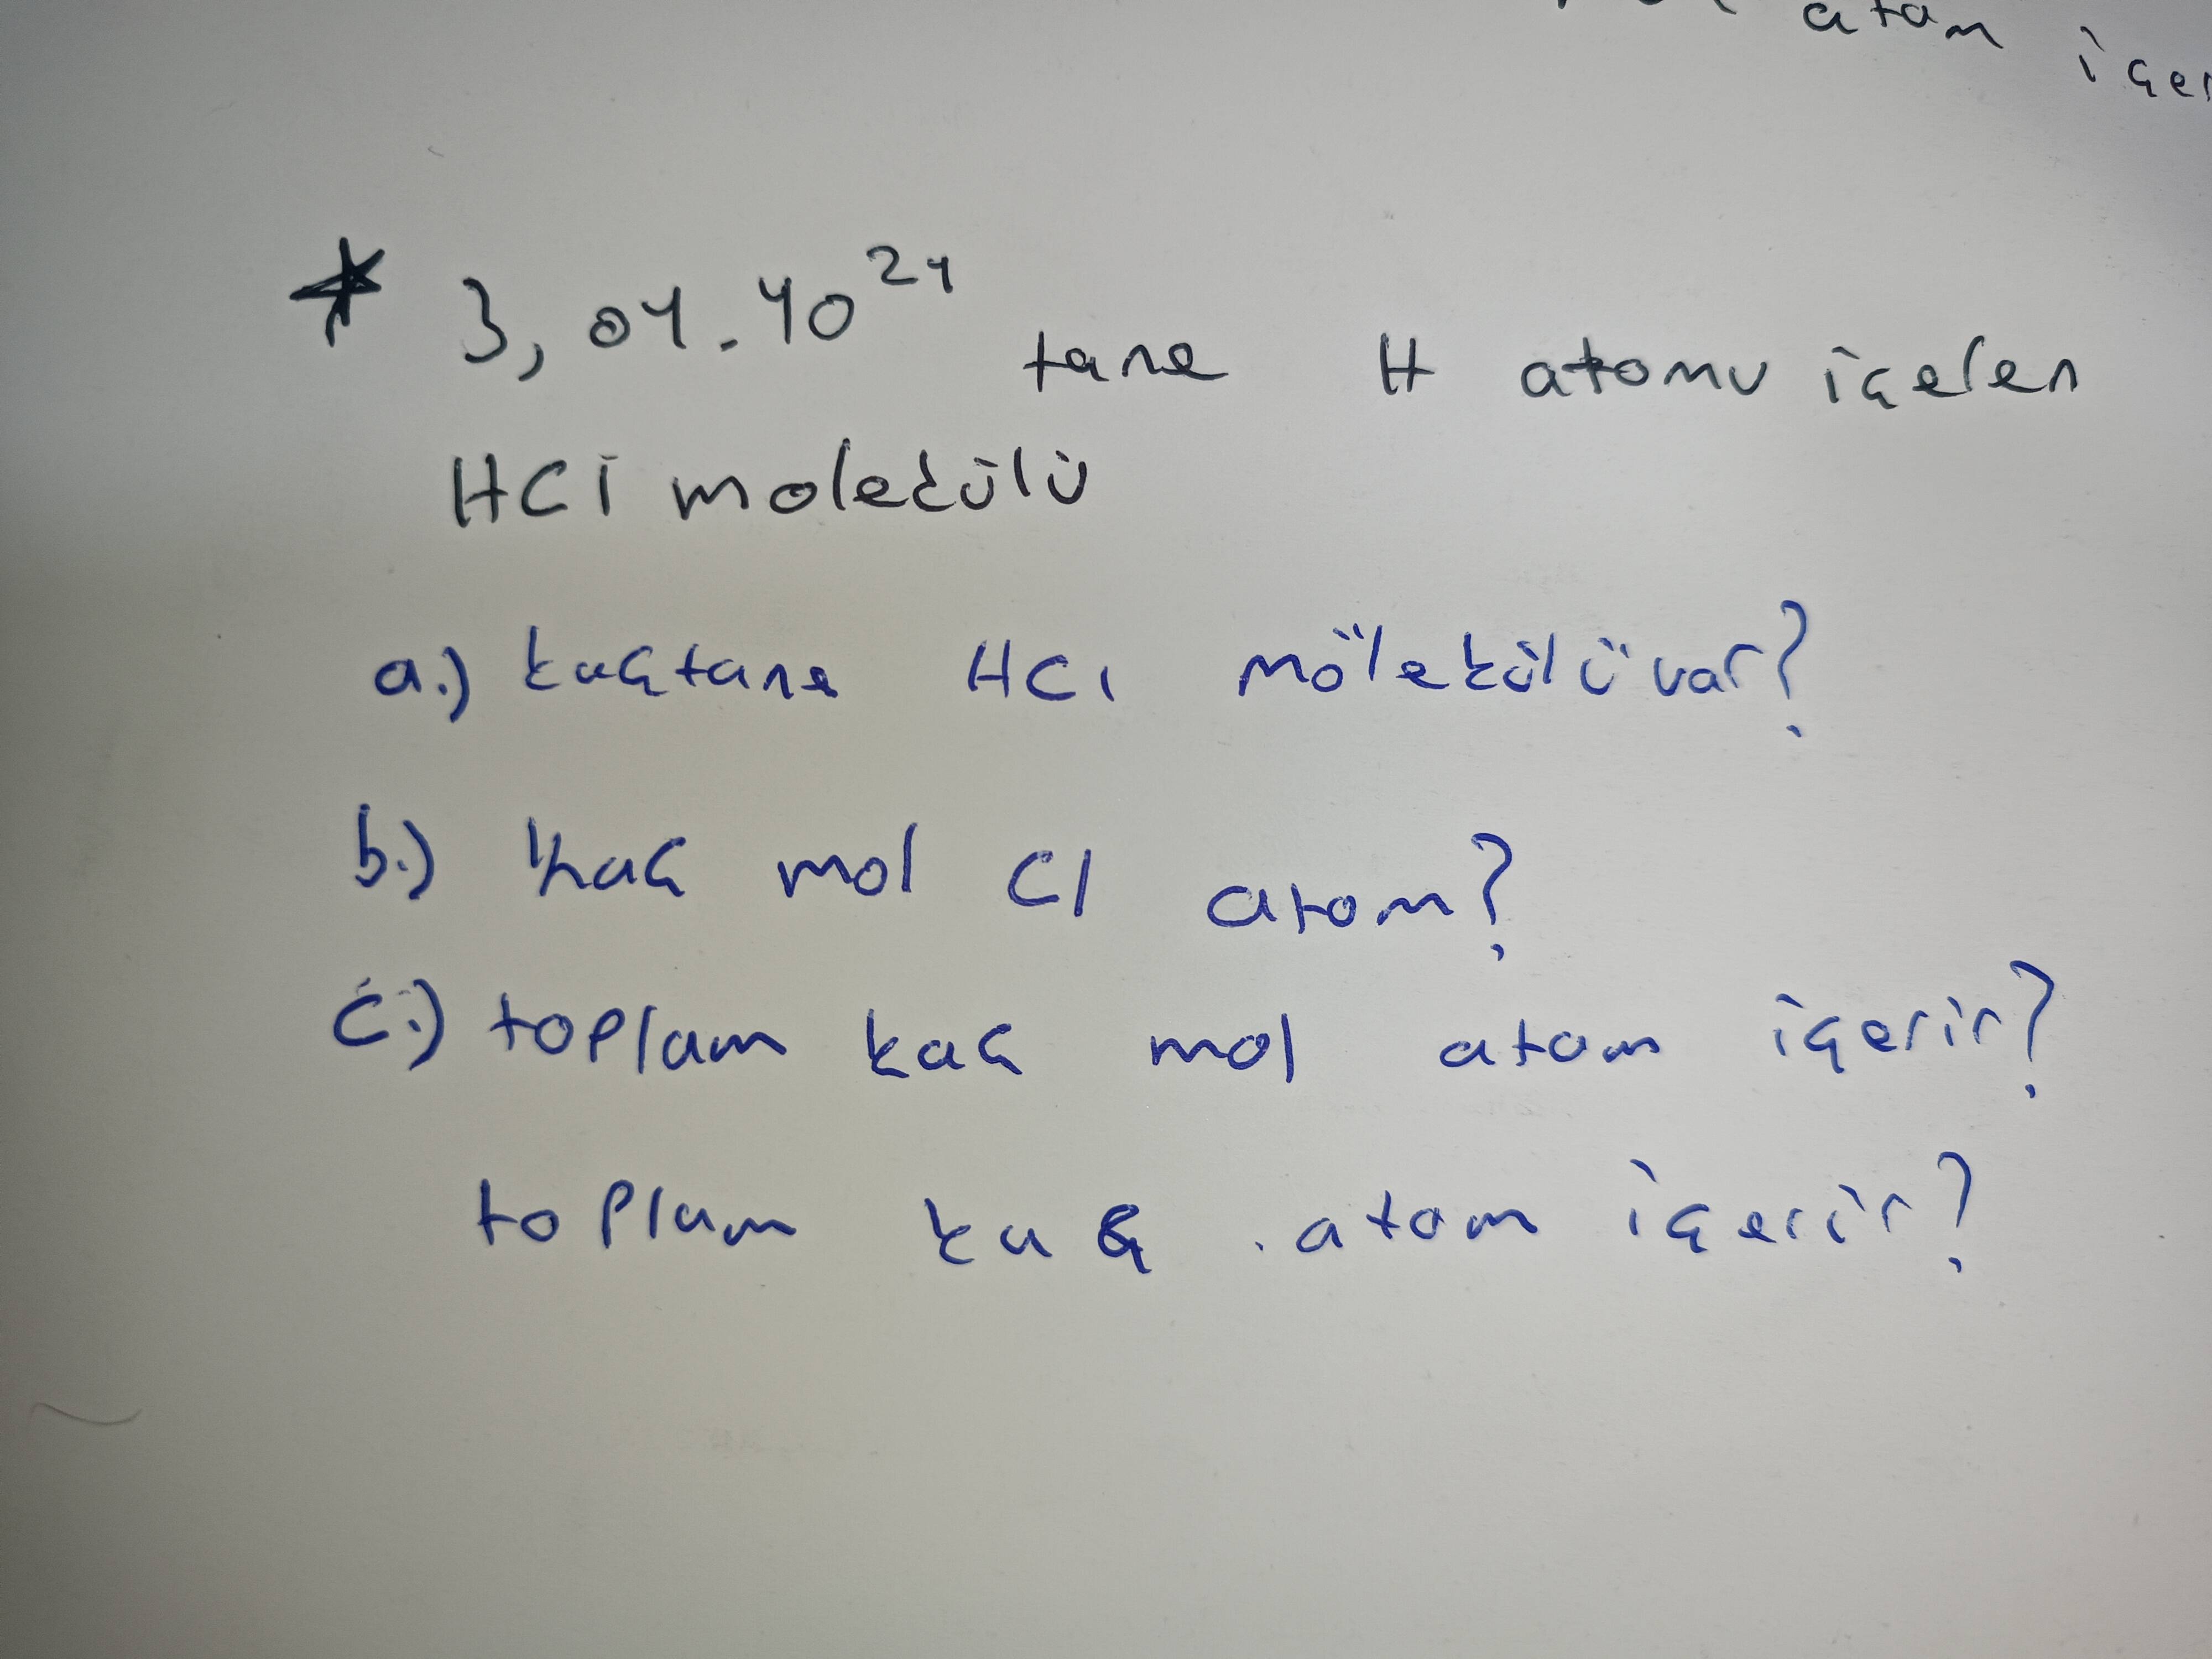 atom içer
* 3,01.10²⁴ tane H atomu içeren
HCl molekülü
a.) kaçtane HCl mölekülü var?
b.) kaç mol Cl atom?
c.) toplam kaç mol atom içerir?
toplam kaç atom içerir?